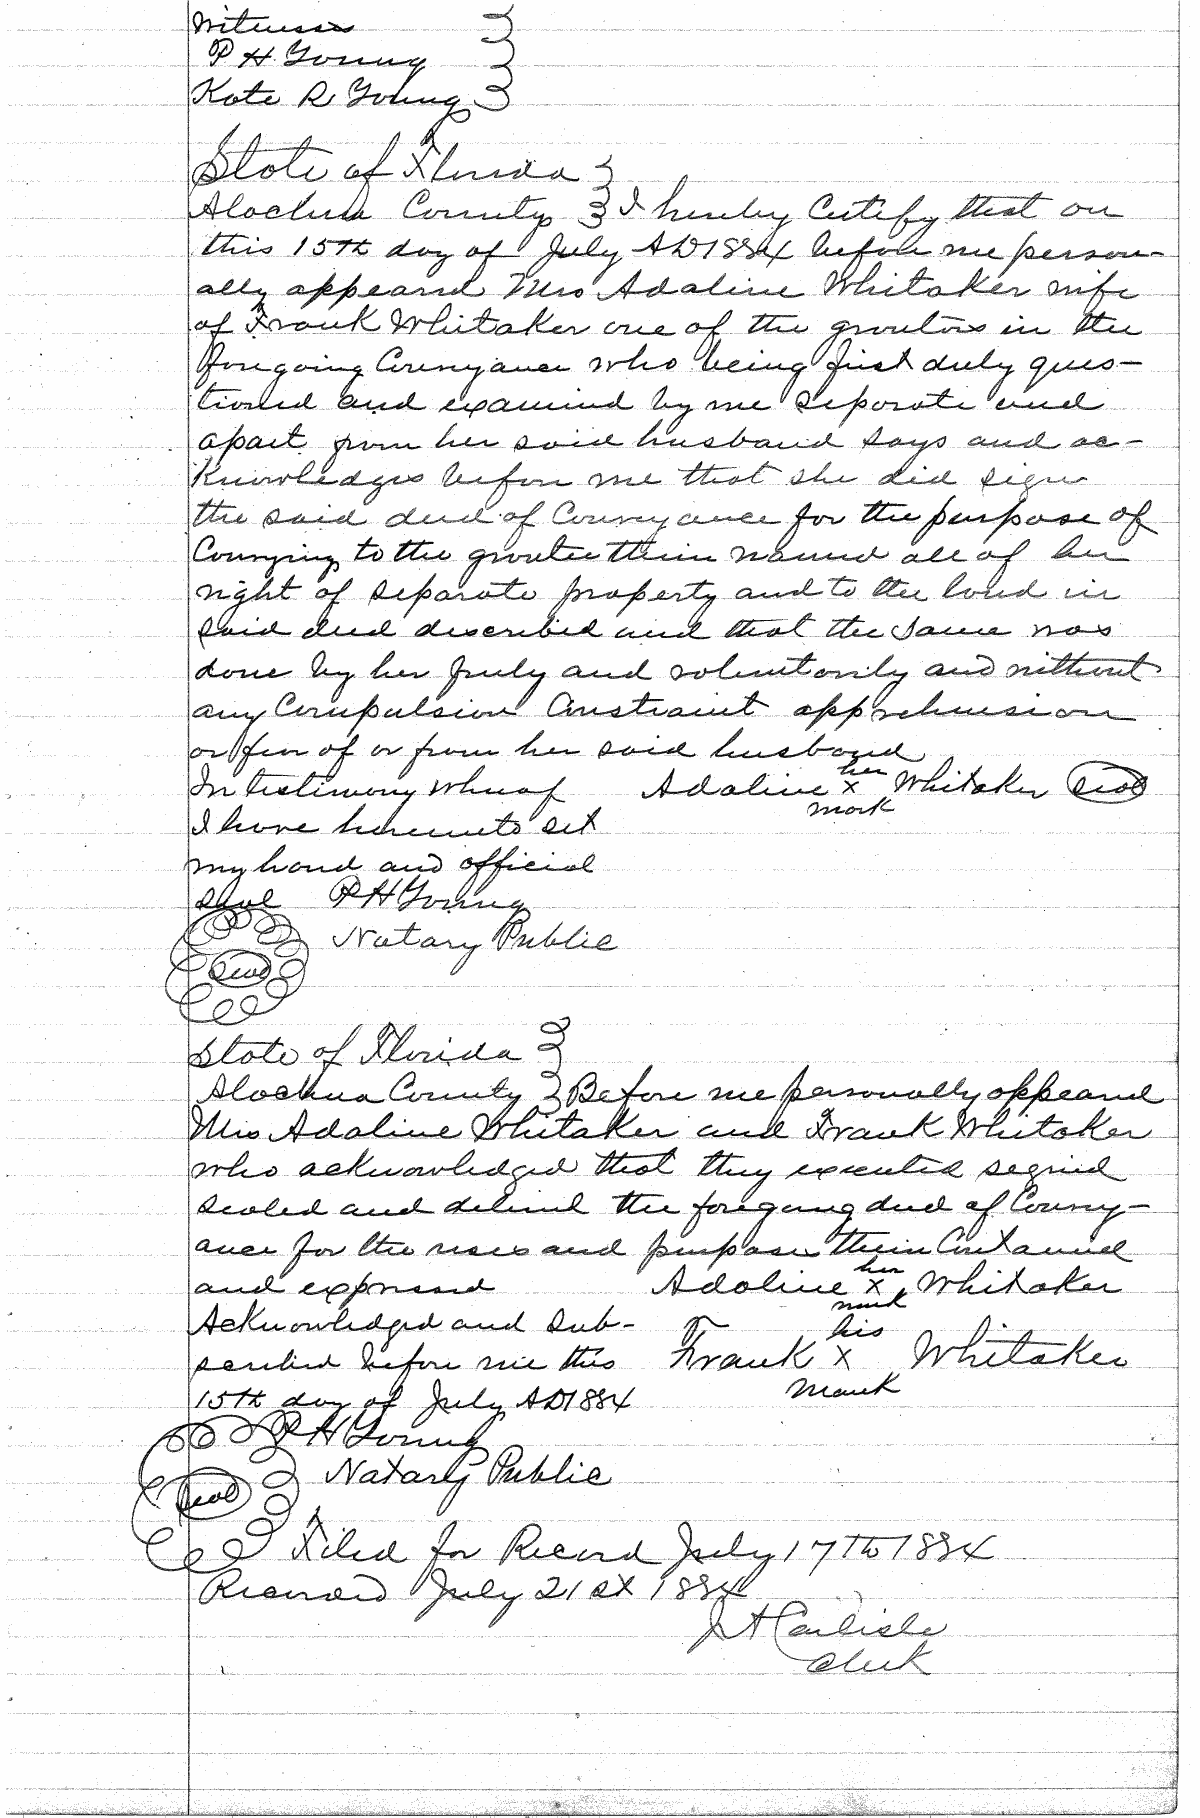 Witness
P H Young
Kate R Young
State of Florida
Alachua County I hereby Certify that on
this 15th day of July AD 1884 before me person-
ally appeard Mrs Adaline Whitaker wife
of Frank Whitaker one of the grantors in the
foregoing Conveyance who being first duly ques-
tioned and examined by me separate and
apart from her said husband says and ac-
Knowledges before me that she did sign
the said deed of Conveyance for the purpose of
Conveying to the grantee therein named all of her
right of separate property and to the land in
said deed described and that the same was
done by her freely and voluntarily and without
any Compulsion Constraint apprehension
or fear of or from her said husband
In testimony whereof Adaline her x mark Whitaker Seal
I have hereunto set
my hand and official
seal P H Young
Notary Public
Seal
State of Florida
Alachua County Before me personally appeared
Mrs Adaline Whitaker and Frank Whitaker
who acknowledged that they executed signed
sealed and delivered the foregoing deed of Convey-
ance for the uses and purposes therein Contained
and expressed Adaline her x mark Whitaker
Acknowledged and sub-
scribed before me this Frank his x mark Whitaker
15th day of July AD 1884
P H Young
Notary Public
Seal
Filed for Record July 17th 1884
Recorded July 21st 1884
J A Carlisle
Clerk